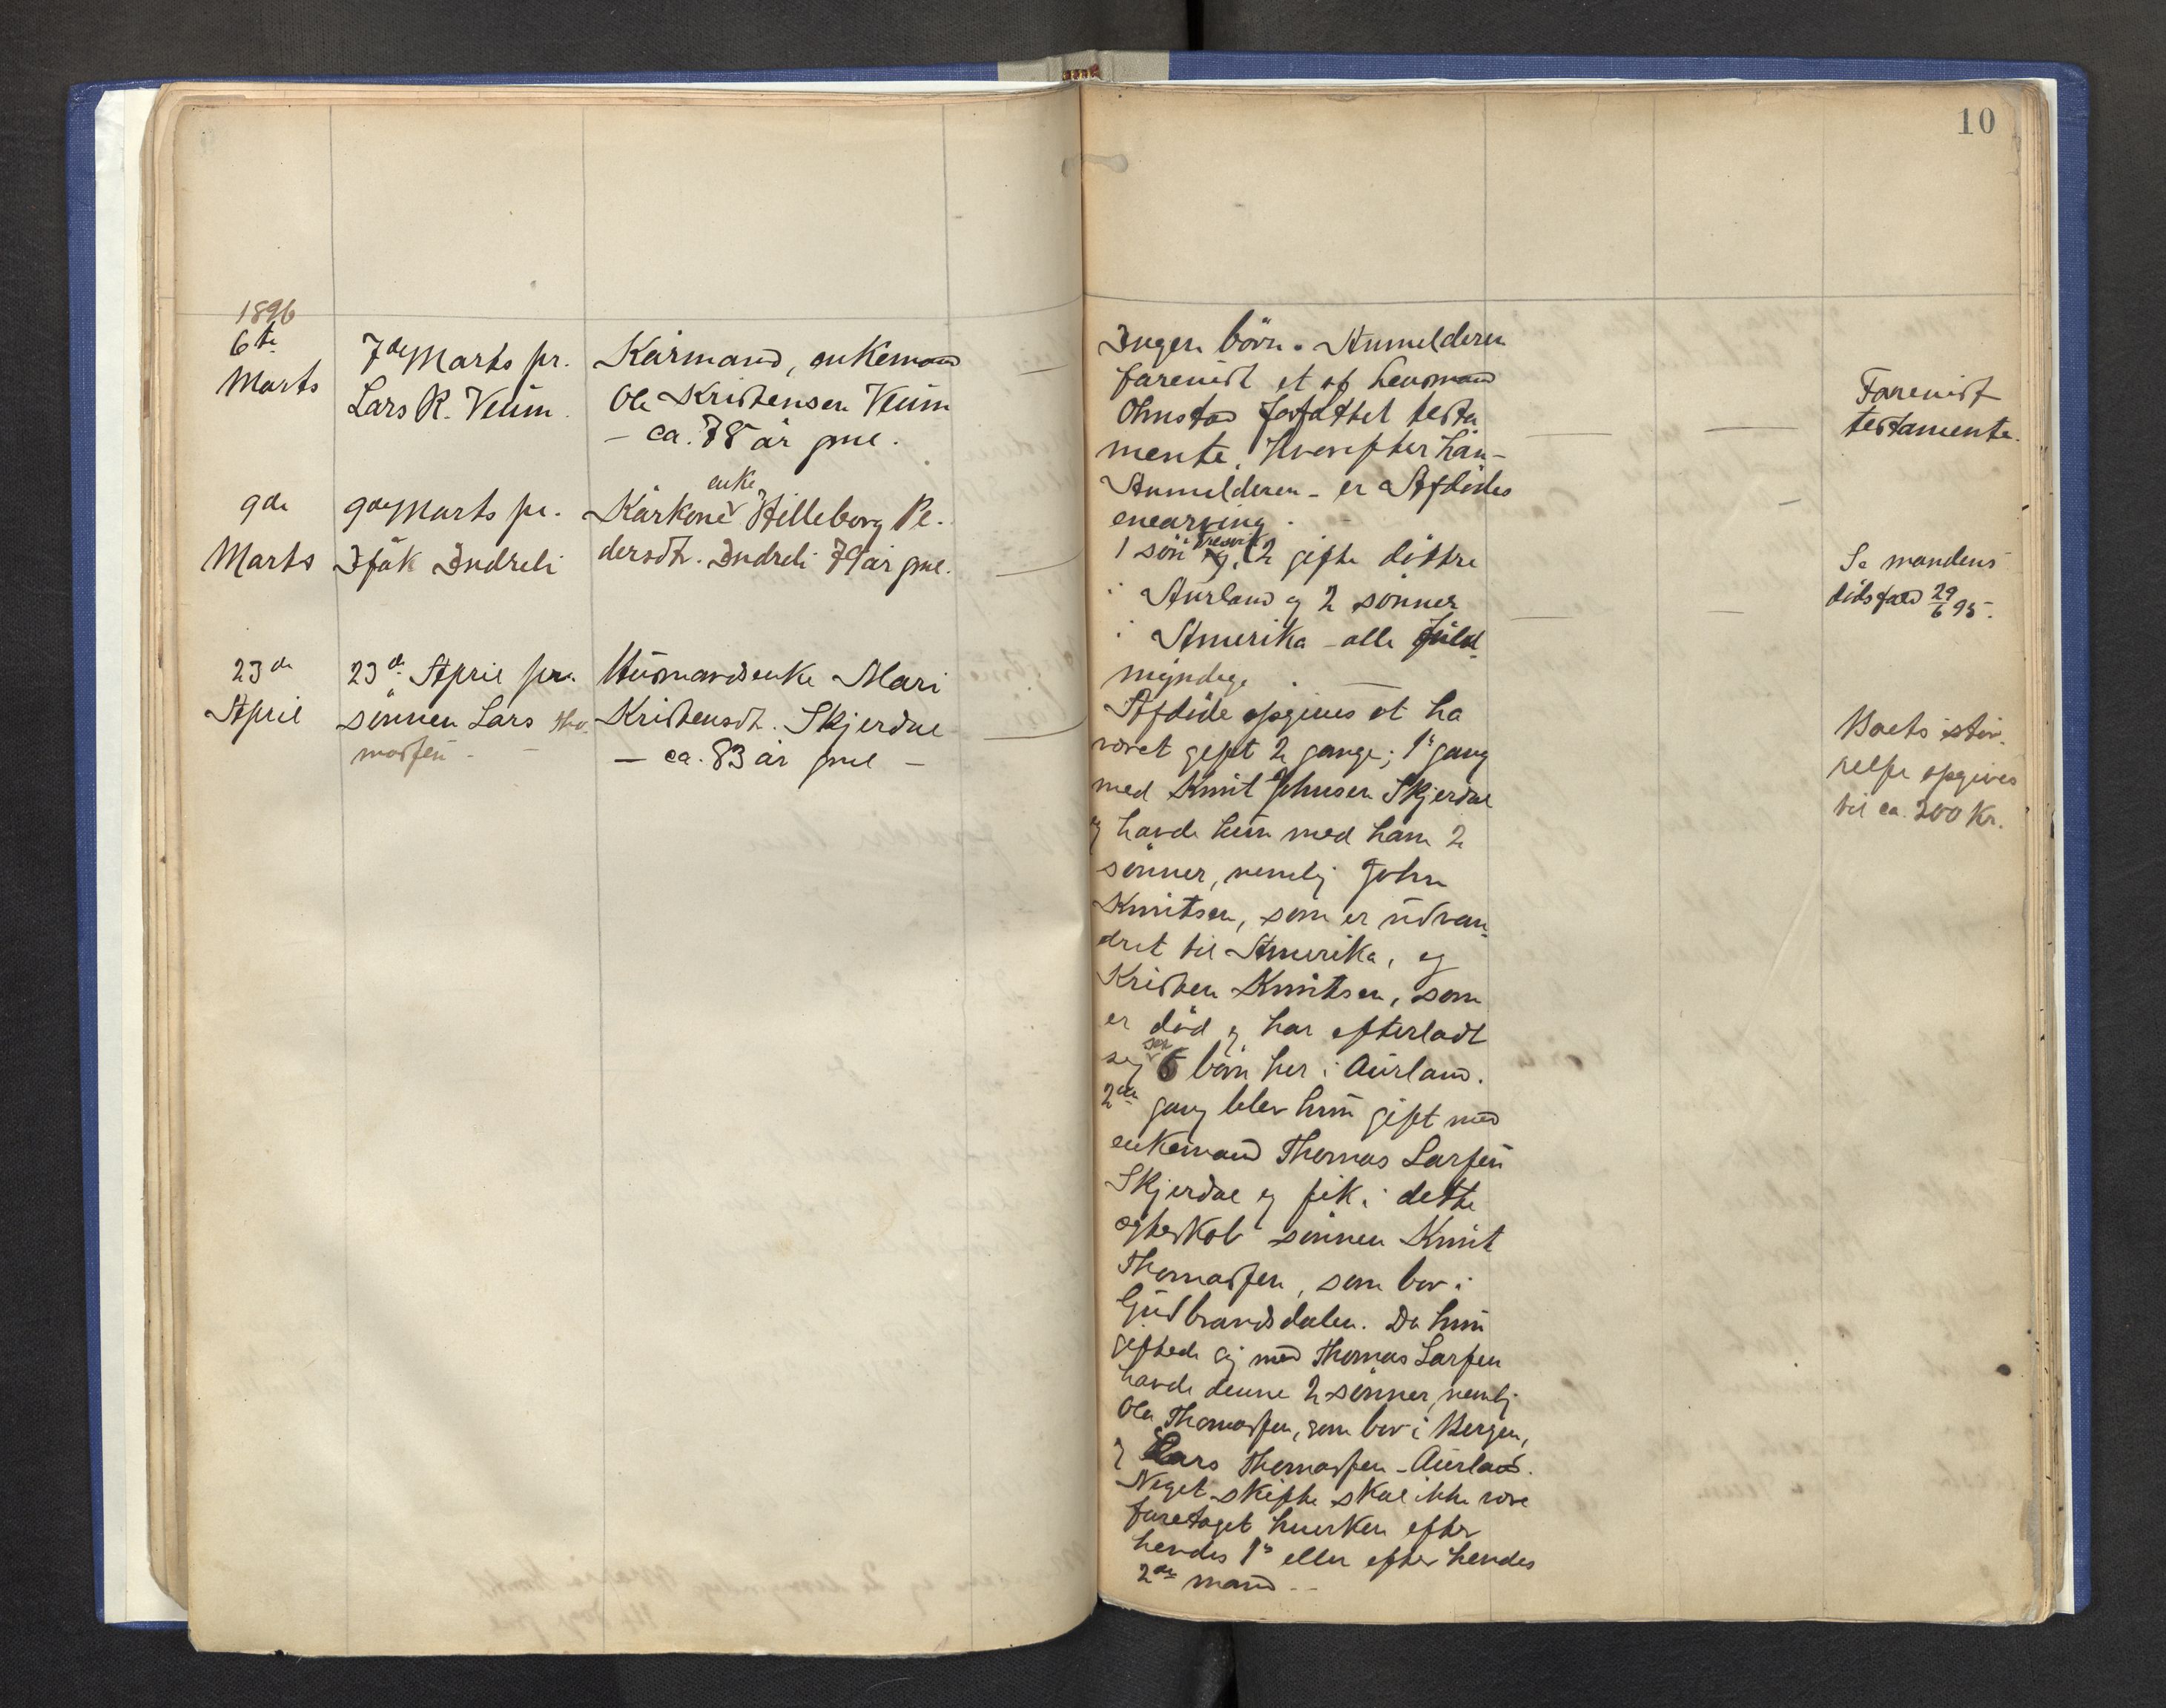 10
1896
6te
Marts
7de Marts pr.
Lars R. Veum.
Kårmand, enkemand
Ole Kristensen Veum
– ca. 78 år gml.
9de
Marts
9de Marts pr.
Isak Indreli
enke
Kårkone Hilleborg Pe-
dersdtr. Indreli 79 år gml.
23de
April
23de April pr.
sønnen Lars Tho-
massen –
Husmandsenke Mari
Kristensdt. Skjerdal
– ca. 83 år gml –
Ingen børn. Anmelderen
forevist et af lensmand
Ohnstad forfattet testa
mente, hvorefter han –
Anmelderen – er Afdødes
enearving.
1 søn og 2 gifte døttre
i Aurland og 2 sønner
i Amerika – alle fuld-
myndige
Afdøde opgives at ha
været gift 2 gange; 1s gang
med Knut Johnsen Skjerdal
og havde hun med ham 2
sønner, nemlig John
Knutsen, som er udvan-
dret til Amerika, og
Kristen Knutsen, som
er død og har efterladt
sig 6 børn her i Aurland.
2den gang blev hun gift med
enkemand Thomas Larsen
Skjerdal og fik i dette
ægteskab sønnen Knut
Thomassen, som bor i
Gudbrandsdalen. Da hun
giftede sig med Thomas Larsen
havde denne 2 sønner, nemlig
Ole Thomassen, som bor i Bergen,
og Lars Thomassen – Aurland.
Noget skifte skal ikke være
foretaget hverken efter
hendes 1s eller efter hendes
2den mand –
Forevist
testamente.
Se mandens
dødsfald 29/6 95.
Boets stør-
relse opgives
til ca. 200 Kr.